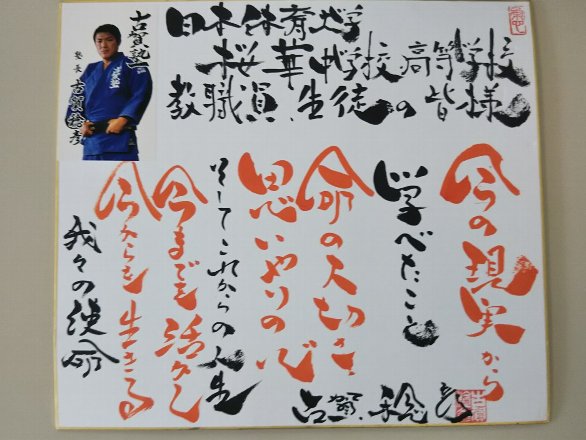 日本体育大学
桜華中学校高等学校
教職員、生徒の皆様
今の現実から
学べたこと
命の大切さ
思いやりの心
そしてこれからの人生
今までを活かし
今からを生きる
我々の使命
古賀稔彦
古賀塾
塾長 古賀稔彦